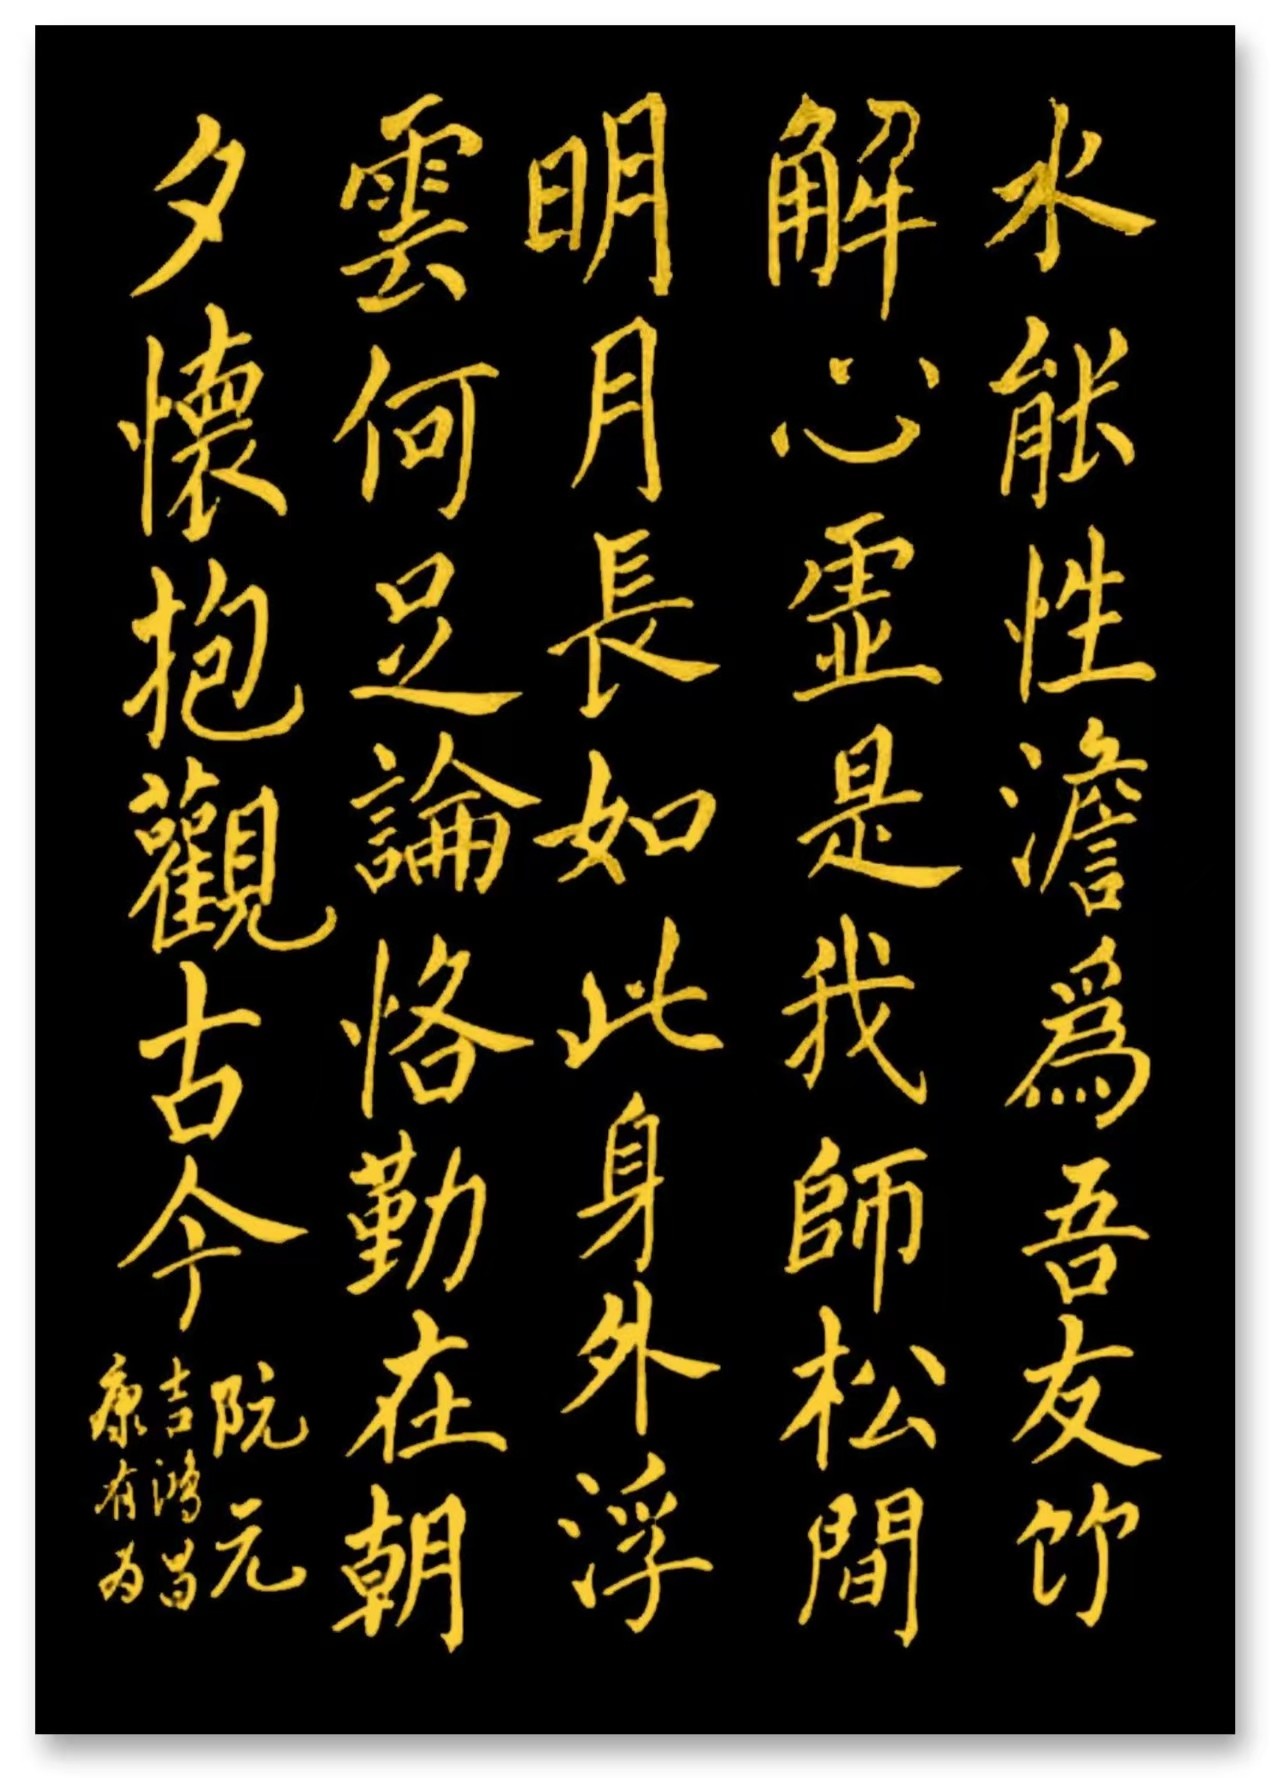 水能性澹爲吾友竹
解心虚是我師松間
明月長如此身外浮
雲何足論恪勤在朝
夕懷抱觀古今
阮元
吉鴻昌
康有为